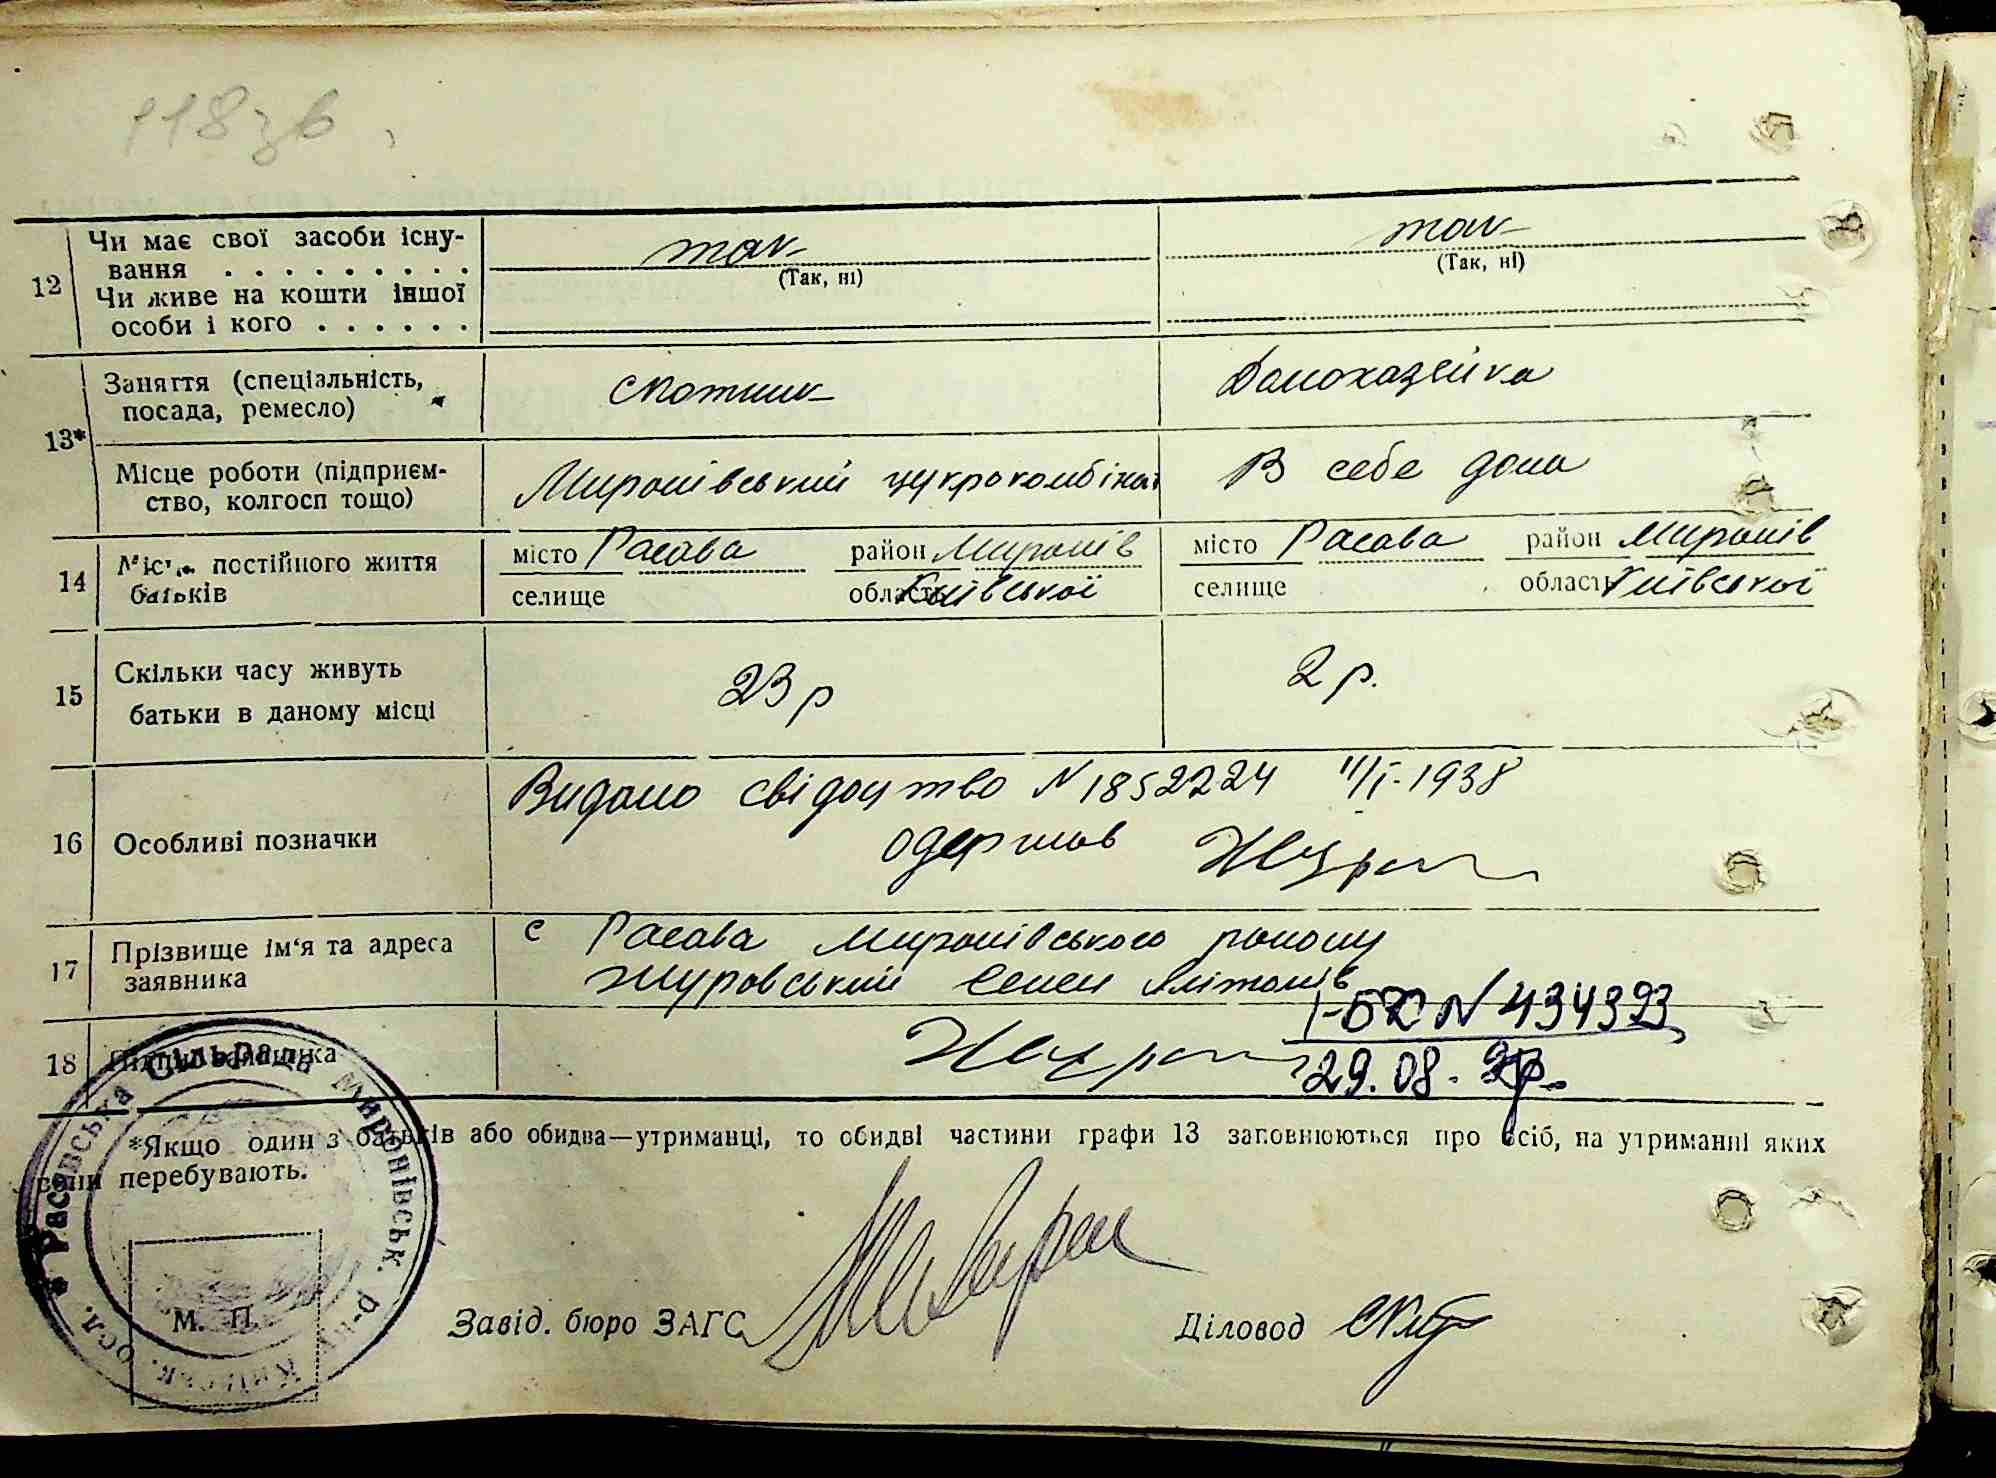 118 зв
12
Чи має свої засоби існу-
вання . . . . . . . . . .
Чи живе на кошти іншої
особи і кого . . . . . .
так
(Так, ні)
так
(Так, ні)
13*
Заняття (спеціальність,
посада, ремесло)
скотник
Домохазяйка
Місце роботи (підприєм-
ство, колгосп тощо)
Миронівський цукрокомбінат
В себе дома
14
Місце постійного життя
батьків
місто Расава район Миронів
селище область Київської
місто Расава район Миронів
селище область Київської
15
Скільки часу живуть
батьки в даному місці
23 р
2 р.
16
Особливі позначки
Видано свідоцтво N 1852224 11/I-1938
одержав
17
Прізвище ім'я та адреса
заявника
с Расава Миронівського району
Журовський Семен
18
Підпис заявника
N 434393
29.08.
*Якщо один з батьків або обидва—утриманці, то обидві частини графи 13 заповнюються про осіб, на утриманні яких
вони перебувають.
* Расавська Сільрада Миронівськ. р-ну Київськ. обл.
М. П.
Завід. бюро ЗАГС
Діловод